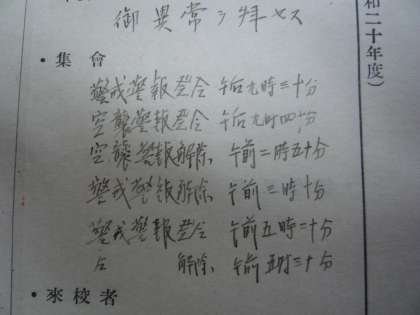 御異常ヲ拝セス
和二十年度)
・集會
警戒警報發令 午后九時三十分
空襲警報發令 午后九時四十分
空襲警報解除 午前二時五十分
警戒警報解除 午前三時十分
警戒警報發令 午前五時二十分
仝 解除 午前五時三十分
・來校者